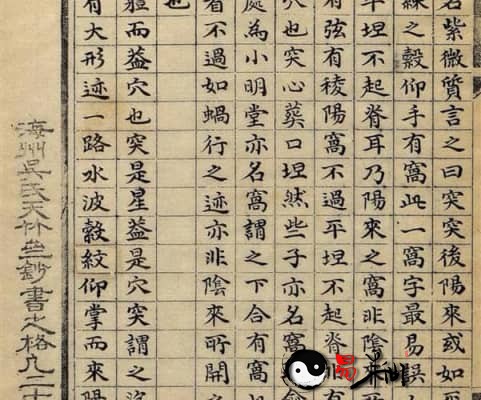 名紫微質言之曰突突後陽來或如
之縠仰手有窩此一窩字最易誤
平坦不起脊耳乃陽來之窩非陰
有弦有稜陽窩不過平坦不起脊
穴也突心葵口坦然些子亦名窩
處為小明堂亦名窩謂之下合有窩
看不過如蝸行之迹亦非陰來所開之
也
體而葢穴也突是星葢是穴突謂之
有大形迹一路水波縠紋仰掌而來陽
海州吳氏天竹鈔書之格凡二十
易